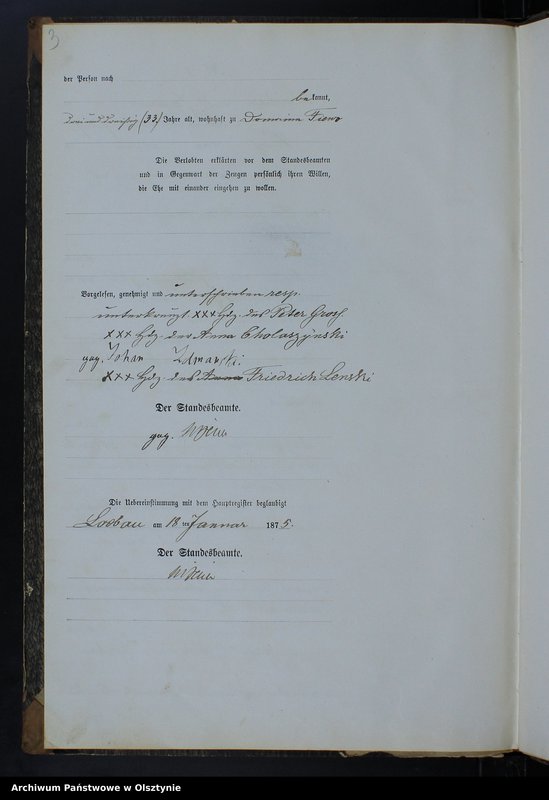 3
der Person nach
bekannt,
drei und dreißig (33) Jahre alt, wohnhaft zu Domaine
Die Verlobten erklärten vor dem Standesbeamten
und in Gegenwart der Zeugen persönlich ihren Willen,
die Ehe mit einander eingehen zu wollen.
Vorgelesen, genehmigt und unterschrieben resp.
unterkreuzt XXX Hdz. des Peter
XXX Hdz. der Anna Cholaszynski
gez. Johan
XXX Hdz. des Anna Friedrich Lenski
Der Standesbeamte.
gez.
Die Uebereinstimmung mit dem Hauptregister beglaubigt
Loebau am 18 ten Januar 1875.
Der Standesbeamte.
Archiwum Państwowe w Olsztynie